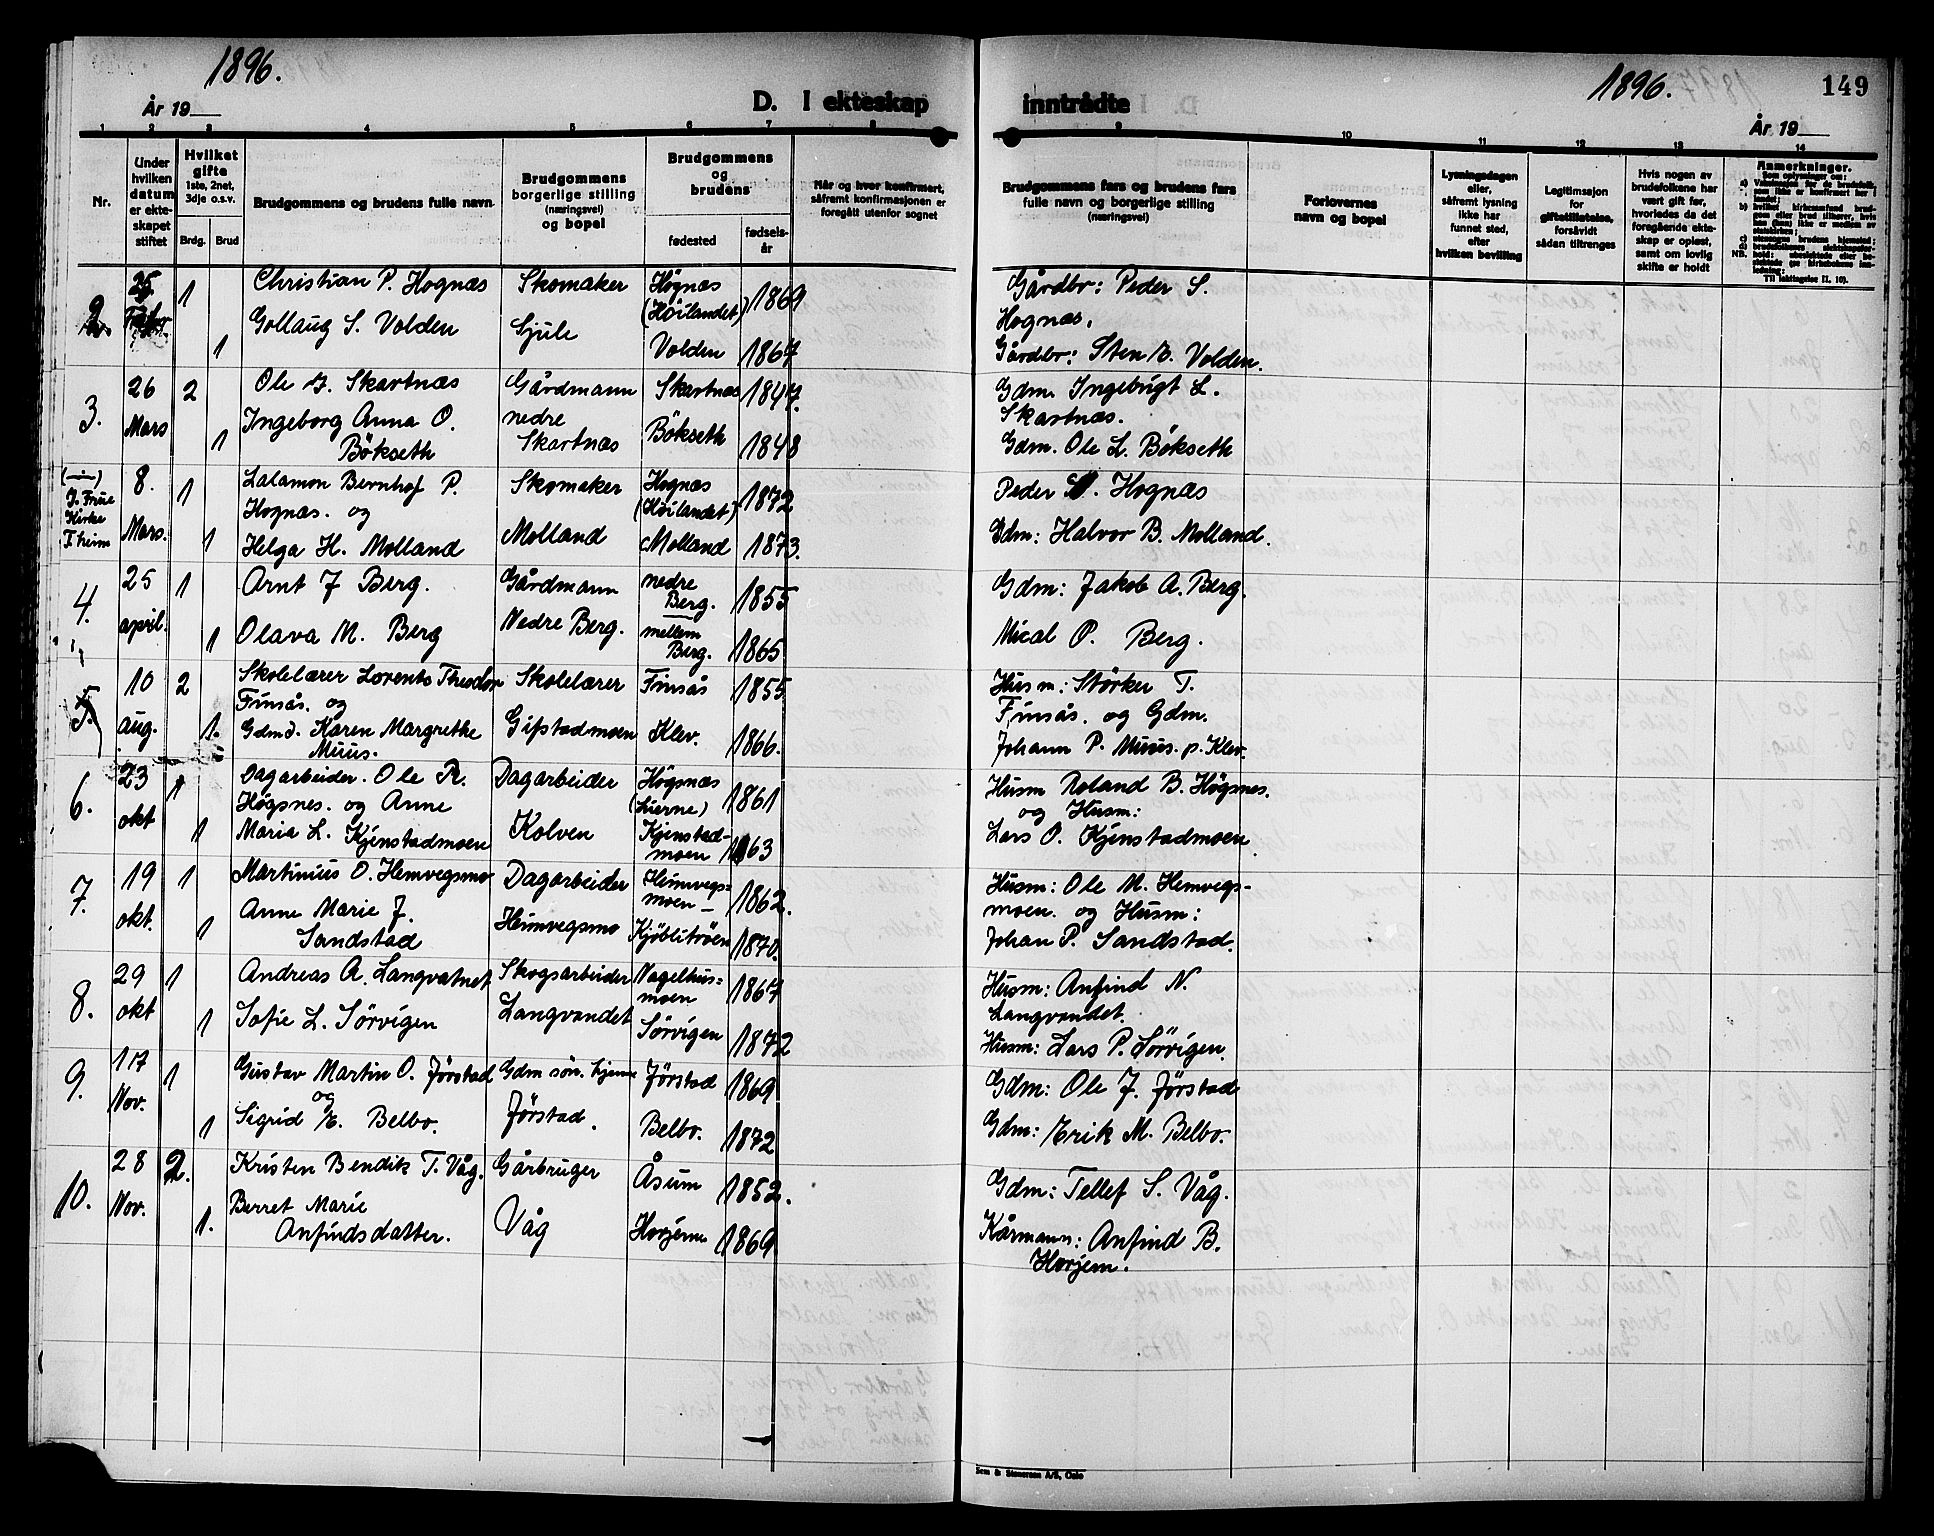 1896.
År 19
D. I ekteskap
1 2 3 4 5 6 7 8
Nr.
Under hvilken datum er ekteskapet stiftet
Hvilket gifte
1ste, 2net, 3dje o.s.v.
Brdg. Brud
Brudgommens og brudens fulle navn
Brudgommens borgerlige stilling (næringsvei) og bopel
Brudgommens og brudens
fødested
fødselsår
Når og hvor konfirmert, såfremt konfirmasjonen er foregått utenfor sognet
2. 25 Febr. 1 Christian P. Hognæs Skomaker Högnæs (Höilandet) 1869
1 Gollaug S. Volden Sjule Volden 1867
3. 26 Mars 2 Ole J. Skartnæs Gårdmann Skartnæs 1847.
1 Ingeborg Anna O. Bökseth nedre Skartnæs Bökseth 1848
(—) I. Frue Kirke T.heim 8. Mars. 1 Lalamon Bernhof P. Hognæs. og Skomaker Hognæs (Höilandet) 1872
1 Helga H. Molland Molland Molland 1873.
4. 25 april. 1 Arnt J Berg. Gårdmann nedre Berg. 1855
1 Olava M. Berg Nedre Berg. mellem Berg. 1865
5. 10 aug. 2 Skolelærer Lorents Theodor Finsås. og Skolelærer Finsås 1855
1. Gdmd. Karen Margrethe Muus. Gifstadmoen Klev. 1866.
6. 23 okt 1 Dagarbeider. Ole R. Høgsnes. og Anne Dagarbeider Högsnæs (Lierne) 1861
1 Maria L. Kjenstadmoen Kolven Kjenstad-moen 1863
7. 19 okt. 1 Martinius O. Hemvegsmo Dagarbeider Heimvegs=moen 1862.
1 Anne Marie J. Sandstad Heimvegsmo Kjøblitröen 1870.
8. 29 okt 1 Andreas A. Langvatnet Skogsarbeider Nagelhus=moen 1867
1 Sofie L. Sörvigen Langvandet Sörvigen 1872
9. 17 Nov. 1 Gustav Martin O. Jørstad og Gdm sön. hjeme Jørstad 1869
1 Sigrid E. Belbo. Jørstad. Belbo. 1872
10. 28 Nov. 2. Kristen Bendik T. Våg. Gårbruger Åsum 1852.
1. Berret Marie Anfindsdatter. Våg Horjem 1869
inntrådte
1896.
149
År 19
9 10 11 12 13 14
Brudgommens fars og brudens fars fulle navn og borgerlige stilling (næringsvei)
Forlovernes navn og bopel
Lysningsdagen eller, såfremt lysning ikke har funnet sted, efter hvilken bevilling
Legitimsajon for giftetillatelse, forsåvidt sådan tiltrenges
Hvis nogen av brudefolkene har vært gift før, hvorledes da det foregående ekteskap er opløst, samt om lovlig skifte er holdt
Anmerkninger.
Gårdbr: Peder S.
Hognæs.
Gårdbr: Sten E. Volden.
Gdm Ingebrigt L.
Skartnæs.
Gdm. Ole L. Bökseth
Peder S. Hognæs
Gdm: Halvor B. Molland.
Gdm: Jakob A. Berg.
Mical O. Berg.
Husm: Størker T.
Finsås. og Gdm.
Johann P. Muus. p. Klev.
Husm Roland B. Högsnes.
og Husm:
Lars O. Kjenstadmoen
Husm: Ole M. Hemvegs-
moen. og Husm:
Johan P. Sandstad.
Husm: Anfind N.
Langvandet.
Husm: Lars P. Sörvigen.
Gdm: Ole J. Jørstad
Gdm: Erik M. Belbo.
Gdm: Tellef S. Våg.
Kårmann: Anfind B.
Horjem.
Sem & Stenersen A/S, Oslo